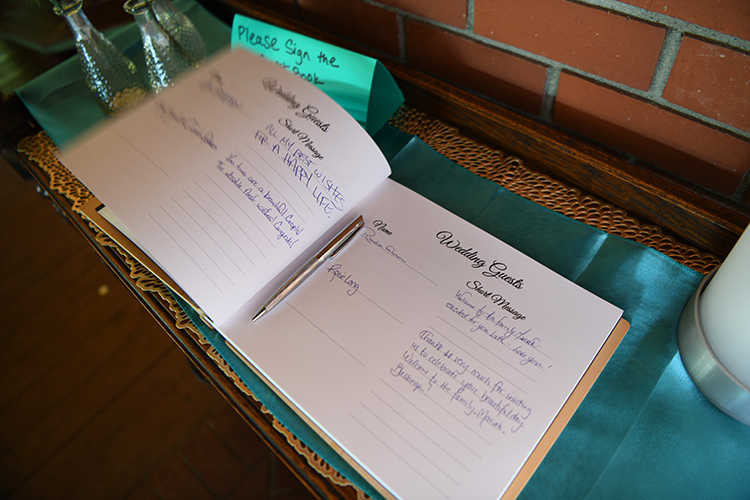 Please Sign the
Book
Wedding Guests
Short Message
ALL MY BEST WISHES
FOR A HAPPY LIFE.
You two are a beautiful Couple!
The absolute best wishes! Congrats!
Wedding Guests
Name
Short Message
Welcome to the family
excited for you both! love you!
Thank so very much for inviting
us to celebrate your beautiful day.
Welcome to the family, Mariah.
Long